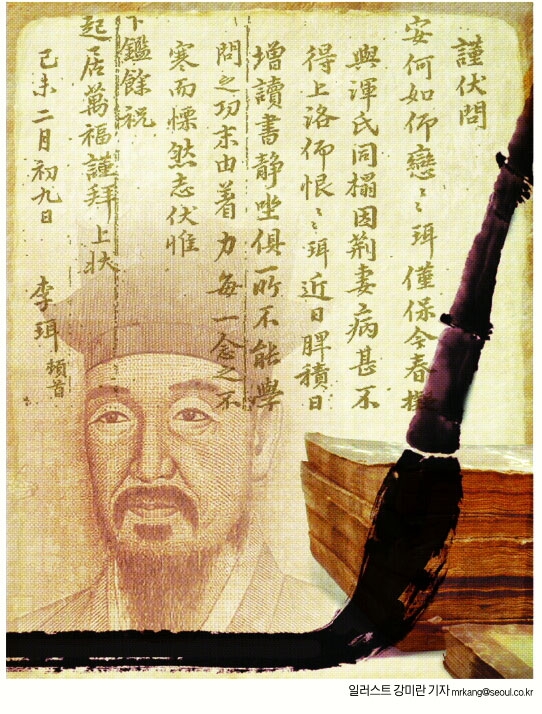 謹伏問
安何如仰戀〻珥僅保今春擬
與渾氏同榻因荊妻病甚不
得上洛仰恨〻珥近日脾積日
增讀書静坐俱所不能學
問之功末由着力每一念之不
寒而慄然志伏惟
下鑑餘祝
起居萬福謹拜上狀
己未二月初九日 李珥頓首
일러스트 강미란 기자 mrkang@seoul.co.kr